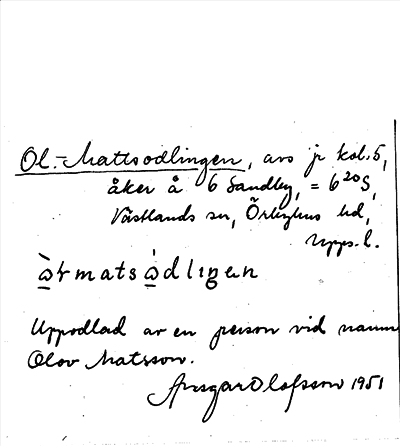 Ol.-Mattsodlingen, avs jr kol. 5,
åker å 6 Sandby, = 6²⁰S,
Västlands sn, Örbyhus hd,
Upps. l.
matsòdlıgɛn
Uppodlad av en person vid namn
Olov Matsson.
Ansgar Olofsson 1951